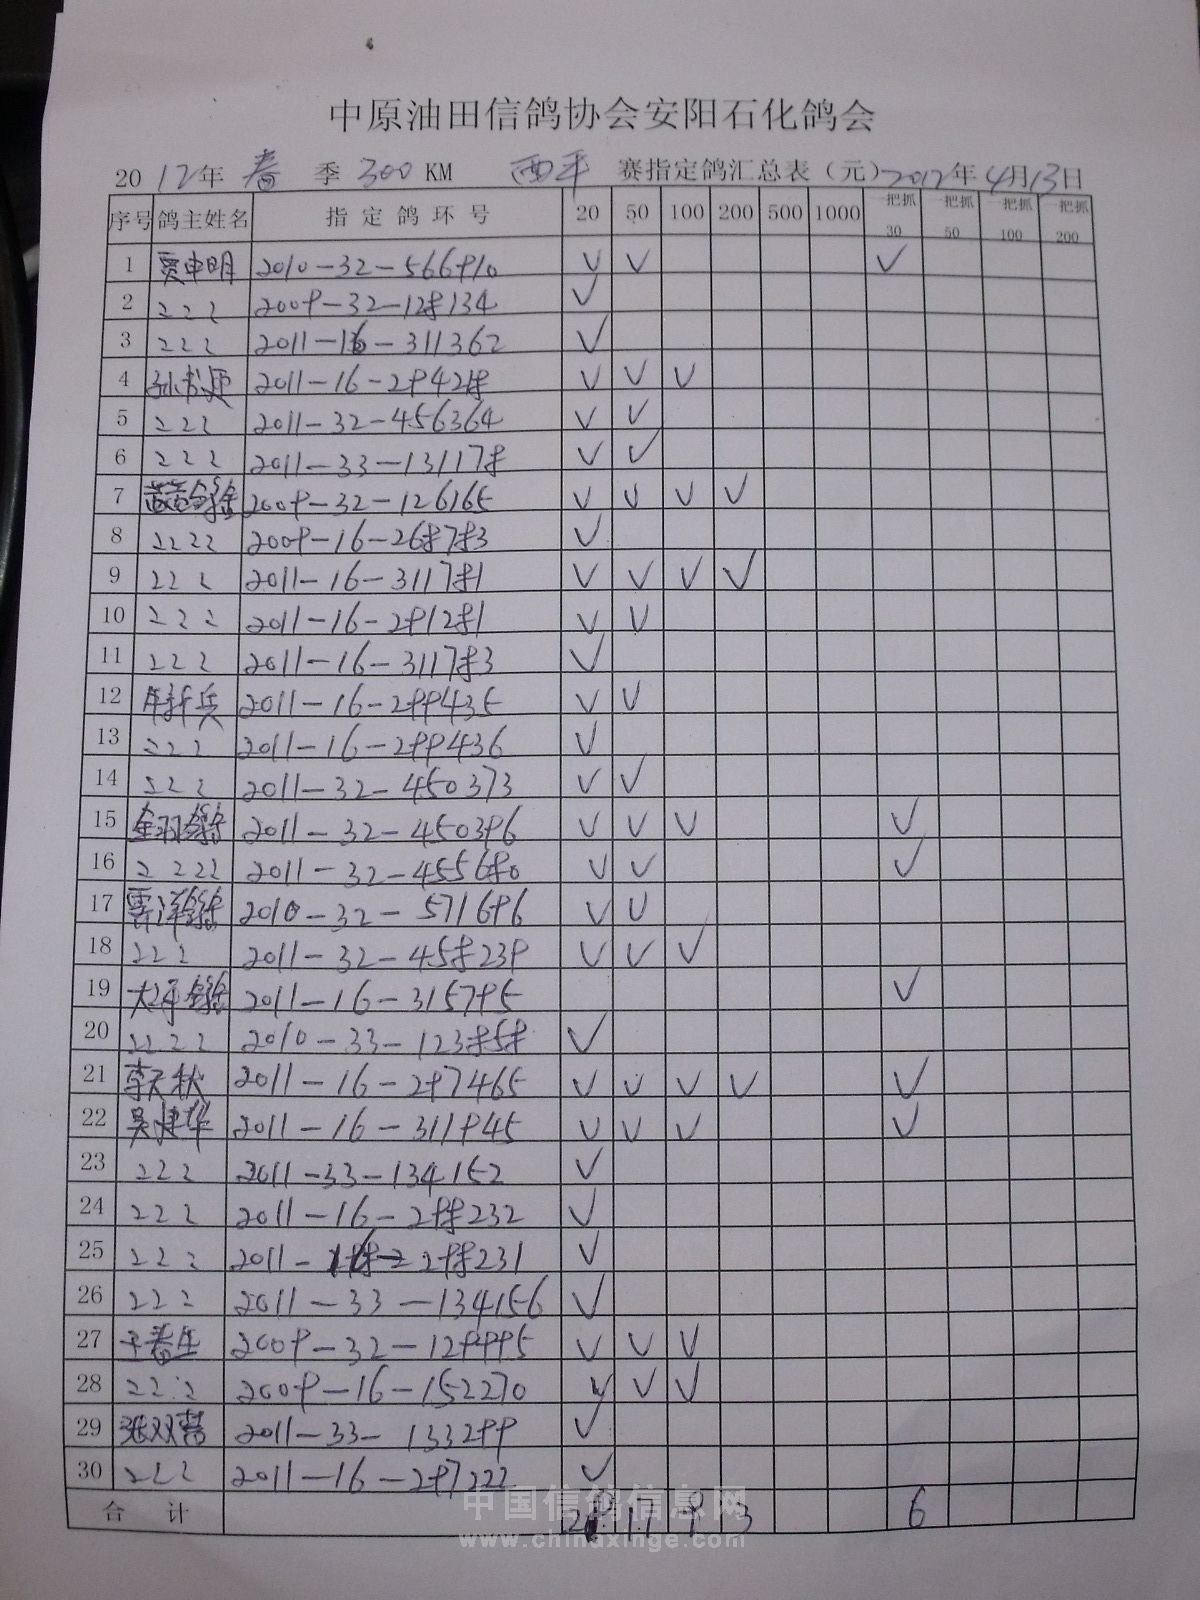 中原油田信鸽协会安阳石化鸽会
2012年 春 季 300 KM 西平 赛指定鸽汇总表（元）2012年4月13日
序号 鸽主姓名 指定鸽环号 20 50 100 200 500 1000 一把抓30 一把抓50 一把抓100 一把抓200
1 贾申明 2010-32-566910 √ √ √
2 〃〃〃 2009-32-128134 √
3 〃〃〃 2011-16-311362 √
4 2011-16-294428 √ √ √
5 〃〃〃 2011-32-456364 √ √
6 〃〃〃 2011-33-131178 √ √
7 2009-32-126165 √ √ √ √
8 〃〃〃〃 2009-16-268783 √
9 〃〃〃 2011-16-311781 √ √ √ √
10 〃〃〃 2011-16-291281 √ √
11 〃〃〃 2011-16-311783 √
12 2011-16-299435 √ √
13 〃〃〃 2011-16-299436 √
14 〃〃〃 2011-32-450373 √ √
15 2011-32-450396 √ √ √ √
16 〃〃〃〃 2011-32-455680 √ √ √
17 2010-32-571696 √ √
18 〃〃〃 2011-32-458239 √ √ √
19 2011-16-315795 √
20 〃〃〃〃 2010-33-123858 √
21 李天秋 2011-16-297465 √ √ √ √ √
22 吴建华 2011-16-311945 √ √ √ √
23 〃〃〃 2011-33-134152 √
24 〃〃〃 2011-16-298232 √
25 〃〃〃 2011- 298231 √
26 〃〃〃 2011-33-134156 √
27 王春生 2009-32-129995 √ √ √
28 〃〃〃 2009-16-152270 √ √ √
29 张双喜 2011-33-133299 √
30 〃〃〃 2011-16-297222 √
合计 29 17 9 3 6
中国信鸽信息网
www.chinaxinge.com